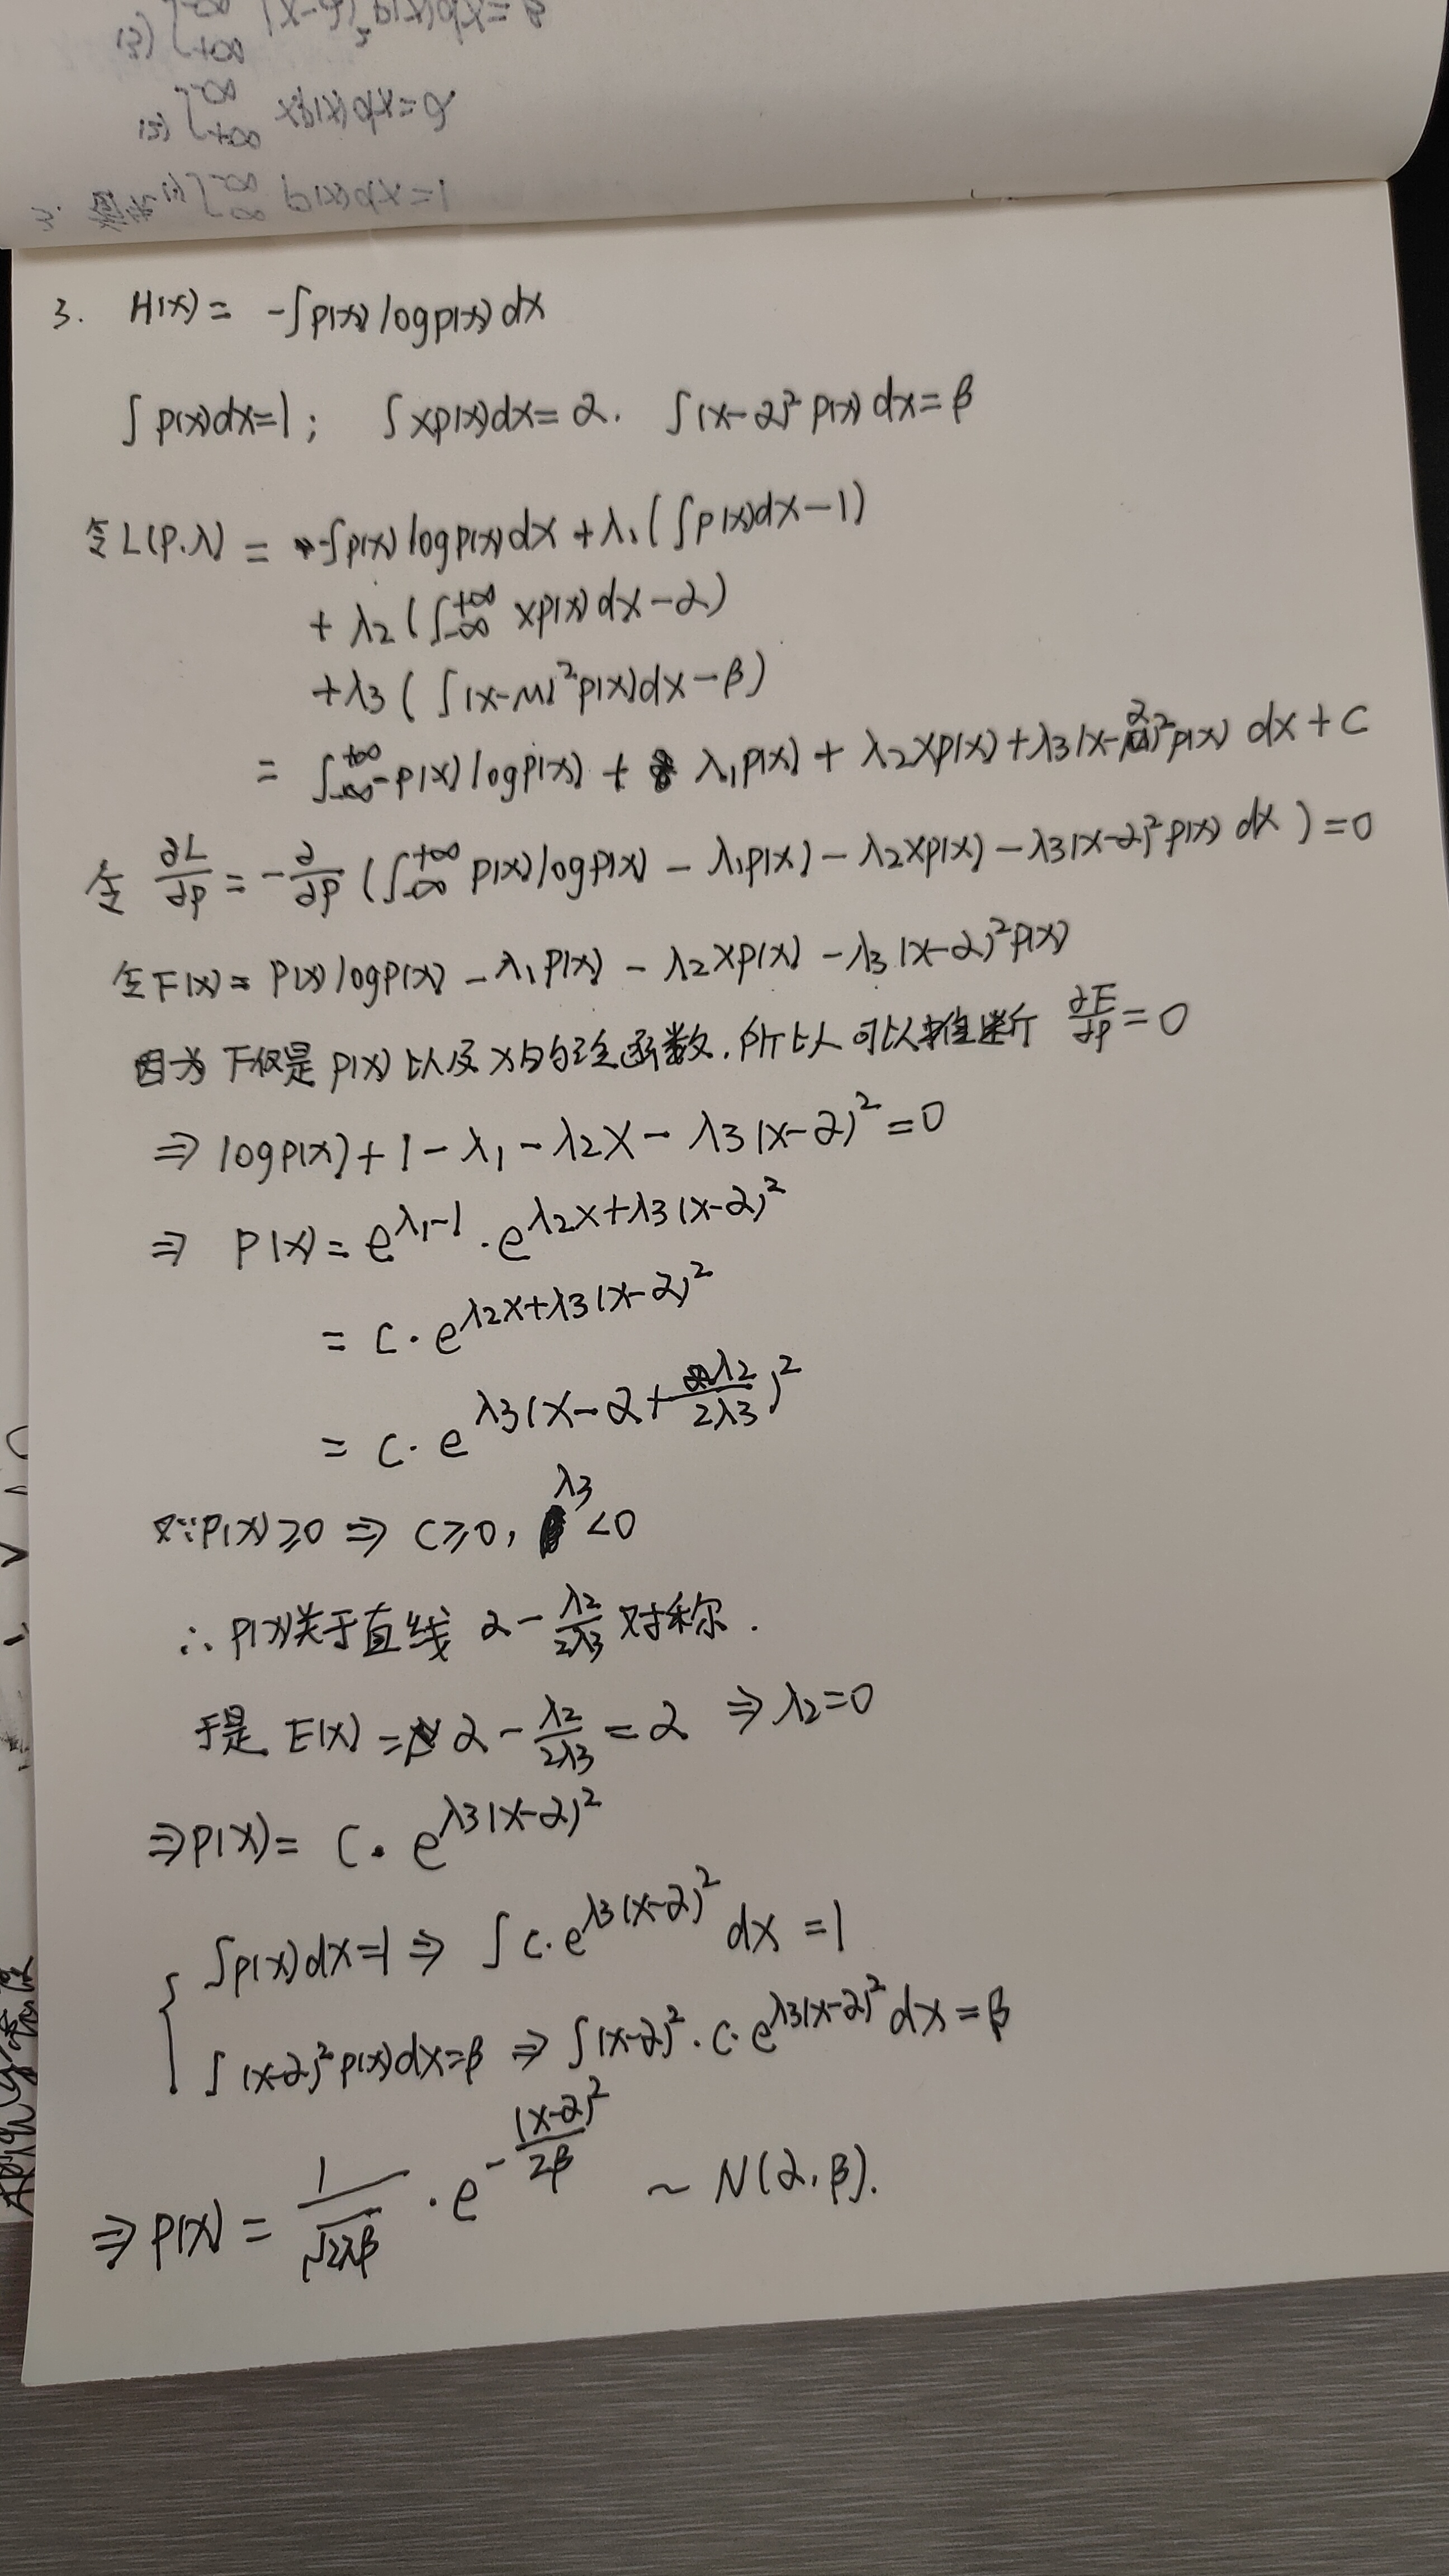 3. H(x) = -∫p(x) log p(x) dx
∫p(x)dx=1; ∫xp(x)dx=α. ∫(x-α)² p(x) dx=β
令L(p.λ) = -∫p(x) log p(x) dx + λ₁(∫p(x)dx-1)
+ λ₂(∫_{-∞}^{+∞} xp(x) dx-α)
+λ₃(∫(x-μ)²p(x)dx-β)
= ∫_{-∞}^{+∞} -p(x) log p(x) + λ₁p(x) + λ₂xp(x) + λ₃(x-α)²p(x) dx + C
令 ∂L/∂p = -∂/∂p (∫_{-∞}^{+∞} p(x) log p(x) - λ₁p(x) - λ₂xp(x) - λ₃(x-α)² p(x) dx) = 0
令F(x) = p(x) log p(x) - λ₁p(x) - λ₂xp(x) - λ₃(x-α)²p(x)
因为 F仅是 p(x) 以及 x的函数,所以 可以推断 ∂F/∂p = 0
⇒ log p(x) + 1 - λ₁ - λ₂x - λ₃(x-α)² = 0
⇒ p(x) = e^{λ₁-1} · e^{λ₂x+λ₃(x-α)²}
= C · e^{λ₂x+λ₃(x-α)²}
= C · e^{λ₃(x-α+λ₂/2λ₃)²}
又∵p(x)≥0 ⇒ C≥0, λ₃<0
∴ p(x)关于直线 α - λ₂/2λ₃ 对称.
于是 E(x) = α - λ₂/2λ₃ = α ⇒ λ₂=0
⇒p(x) = C · e^{λ₃(x-α)²}
{ ∫p(x)dx=1 ⇒ ∫C·e^{λ₃(x-α)²} dx = 1
∫(x-α)²p(x)dx=β ⇒ ∫(x-α)²·C·e^{λ₃(x-α)²}dx=β
⇒ p(x) = 1/√2πβ · e^{-(x-α)²/2β} ~ N(α.β).